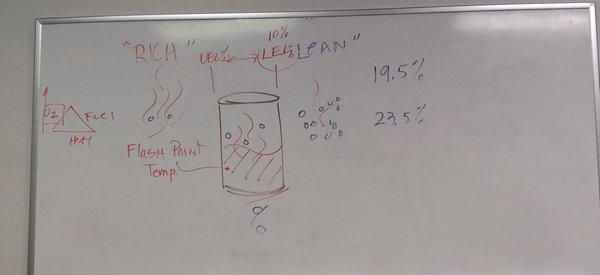 10%
"RICH" UEL% LEL% LEAN"
19.5%
O2 FUEL
HEAT
23.5%
FLASH POINT
Temp.
%